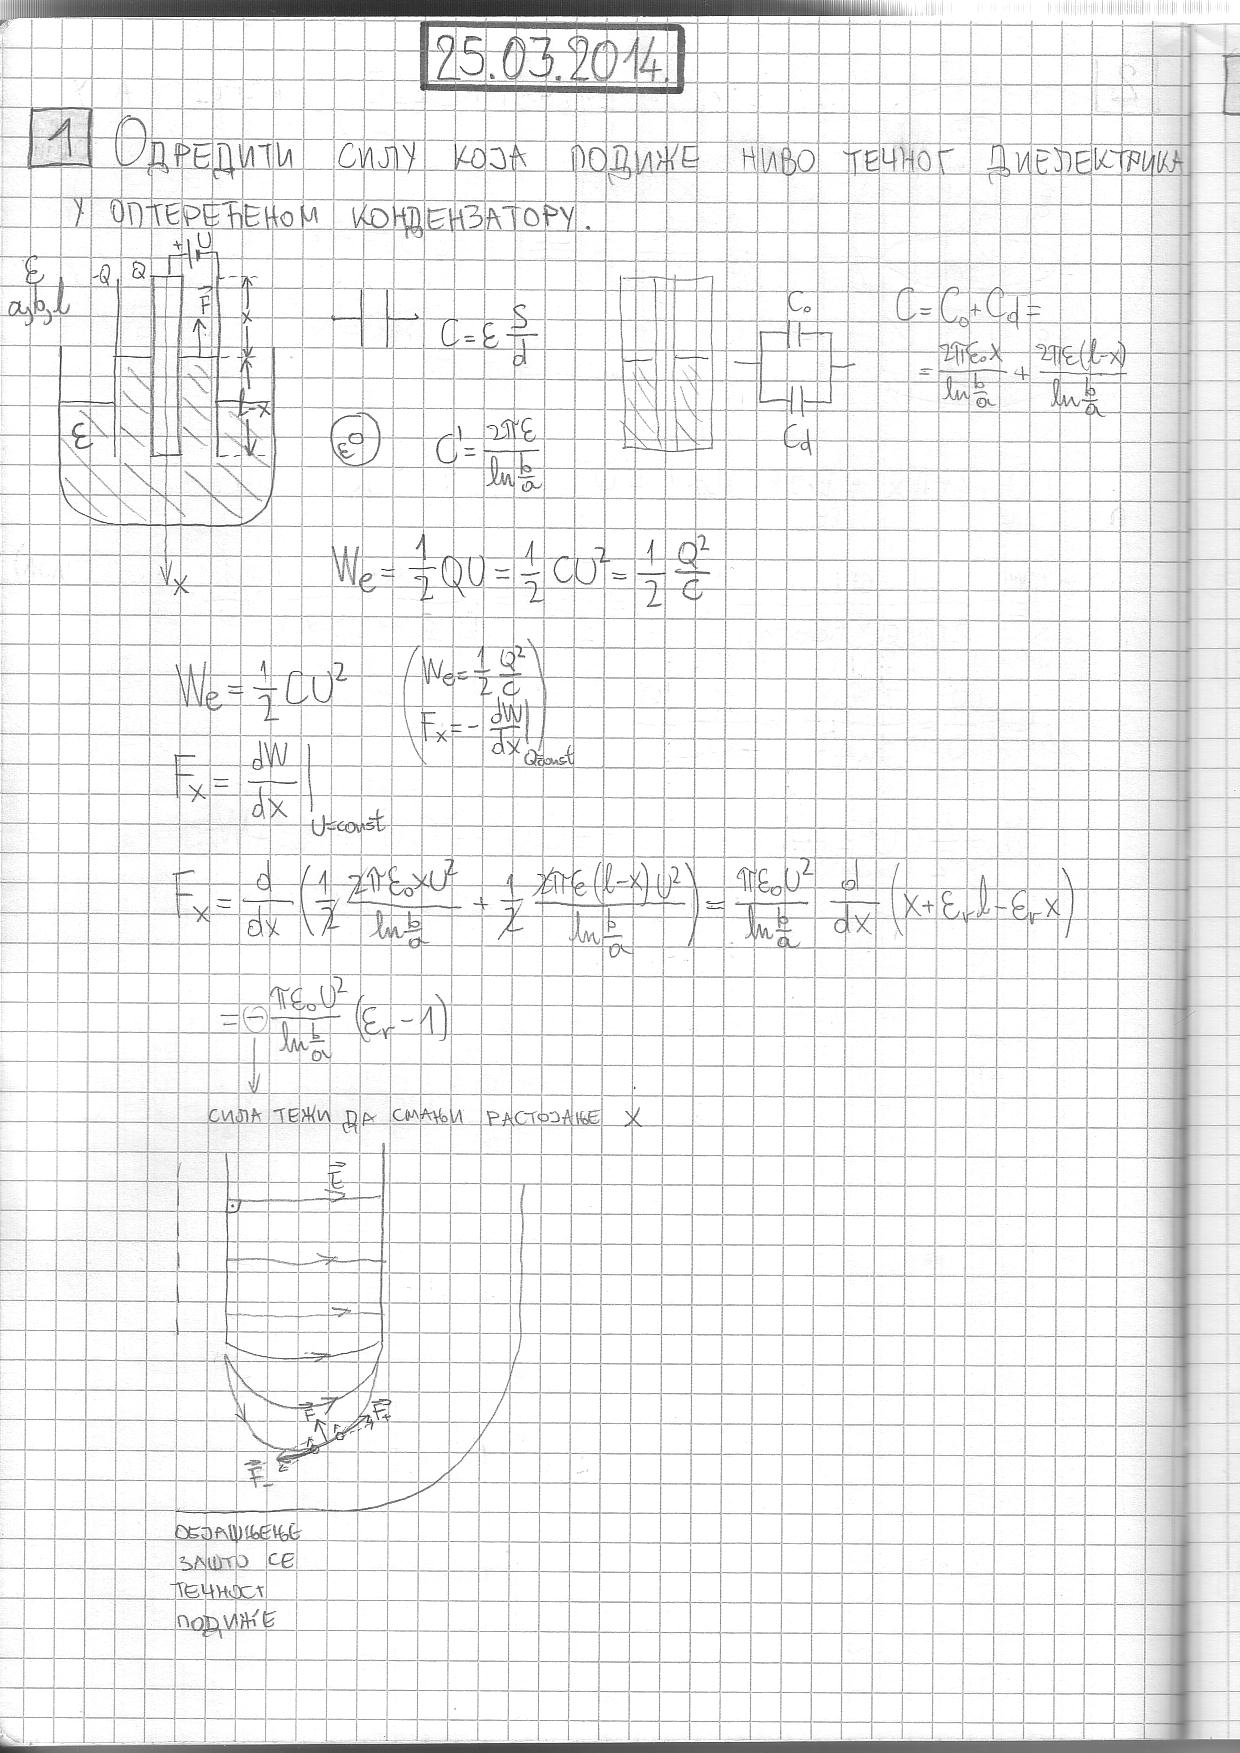 25.03.2014.
1 ОДРЕДИТИ СИЛУ КОЈА ПОДИЖЕ НИВО ТЕЧНОГ ДИЕЛЕКТРИКА
У ОПТЕРЕЋЕНОМ КОНДЕНЗАТОРУ.
ε
a,b,l
-Q Q + U
F
x
l-x
ε
x
C = ε S/d
ε
C' = 2πε / ln b/a
C₀
C_d
C = C₀ + C_d =
= 2πε₀x / ln b/a + 2πε(l-x) / ln b/a
W_e = 1/2 QU = 1/2 CU² = 1/2 Q²/C
W_e = 1/2 CU²
(W_e = 1/2 Q²/C
F_x = - dW/dx | Q=const)
F_x = dW/dx | U=const
F_x = d/dx (1/2 2πε₀xU² / ln b/a + 1/2 2πε(l-x)U² / ln b/a) = πε₀U² / ln b/a d/dx (x + ε_r l - ε_r x)
= - πε₀U² / ln b/a (ε_r - 1)
СИЛА ТЕЖИ ДА СМАЊИ РАСТОЈАЊЕ X
E
F
F₊
F₋
ОБЈАШЊЕЊЕ
ЗАШТО СЕ
ТЕЧНОСТ
ПОДИЖЕ